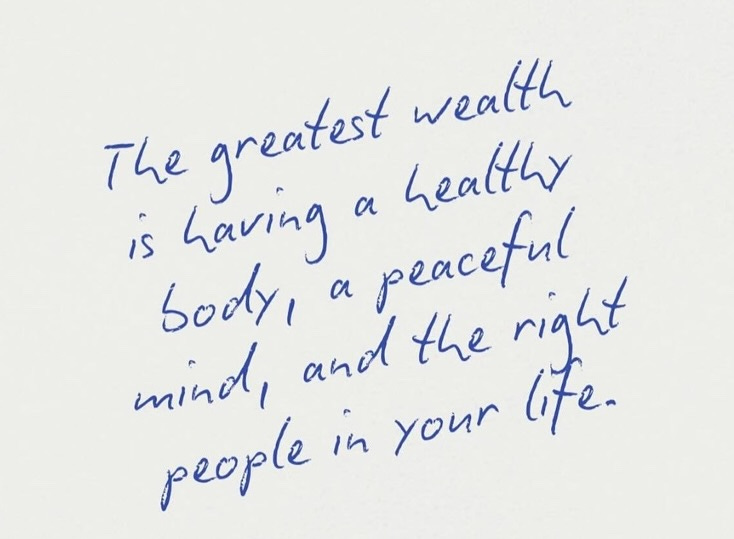 The greatest wealth
is having a healthy
body, a peaceful
mind, and the right
people in your life.